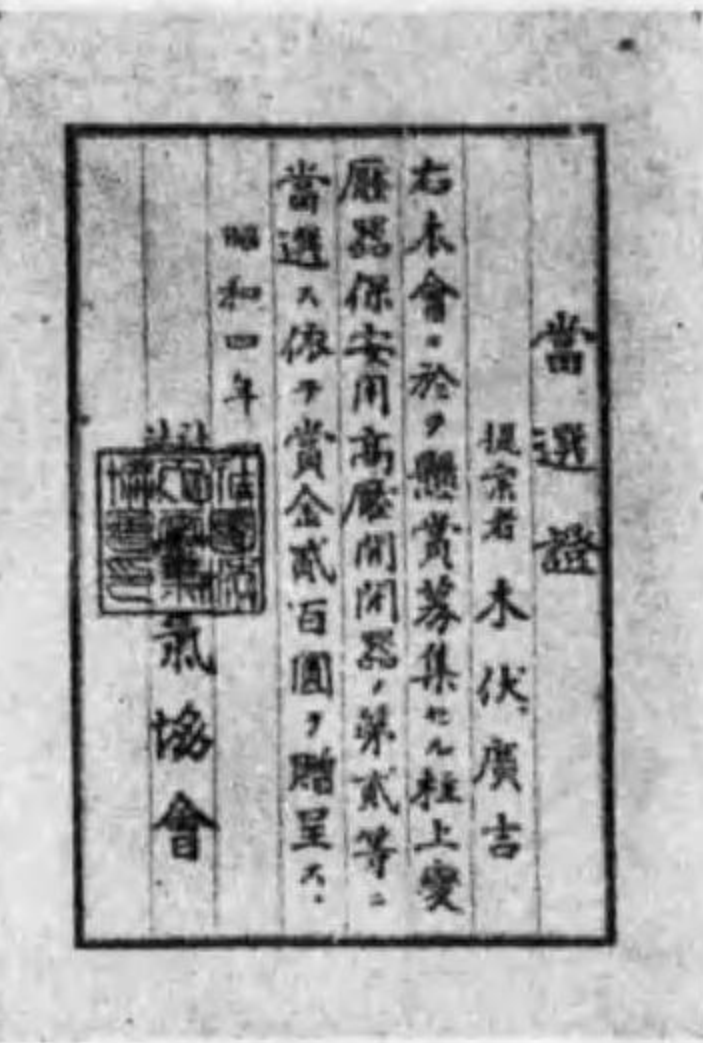 當選證
提案者 木伏廣吉
右本會ニ於テ懸賞募集セル柱上變
壓器保安用高壓開閉器ノ第貳等ニ
當選ス依テ賞金貳百圓ヲ贈呈ス
昭和四年
社 電氣協會